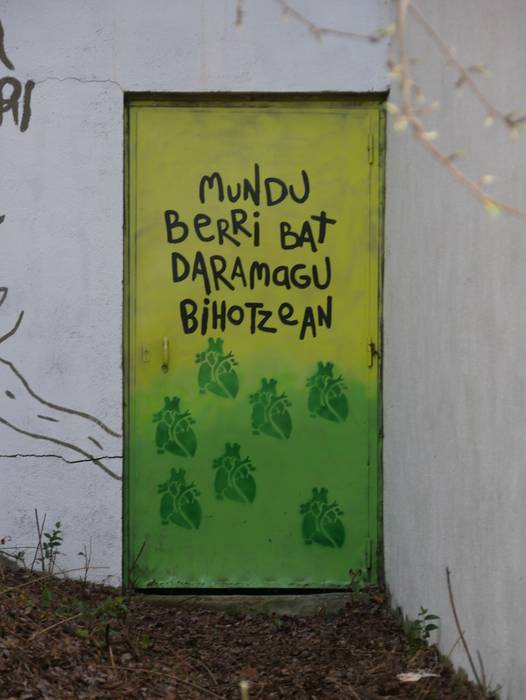 MUNDU
BERRi BAT
DARAMAGU
BiHOTZeAN
RI